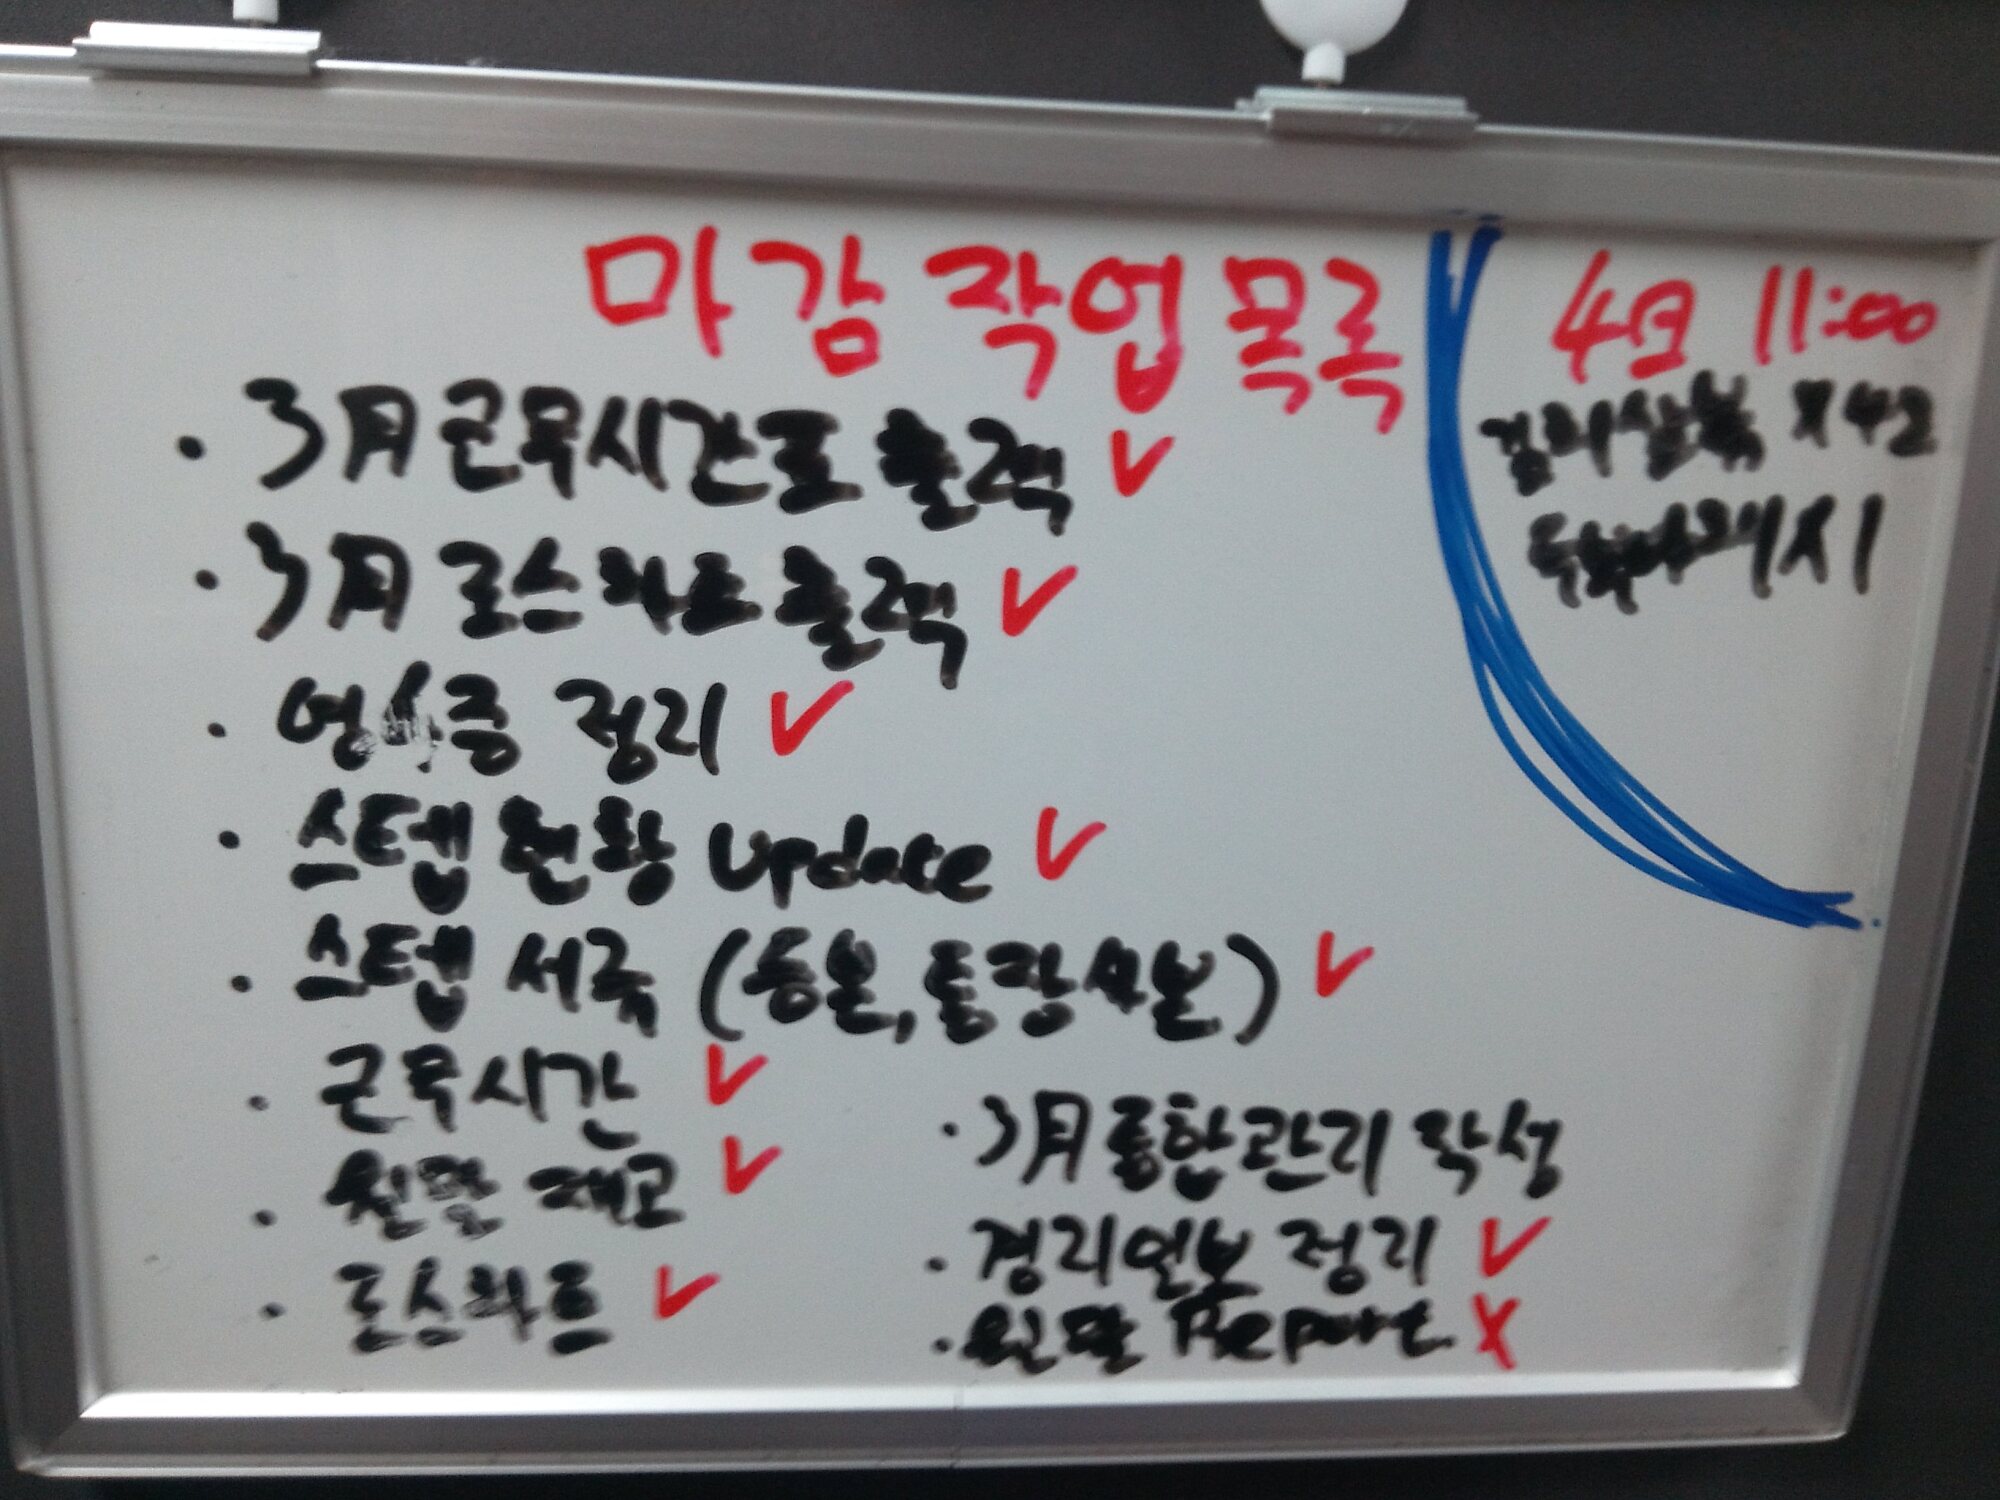 마감 작업 목록
· 3月 근무시간표 출력 ✓
· 3月 로스차트 출력 ✓
· 영수증 정리 ✓
· 스텝 현황 update ✓
· 스텝 서류 (등본, 통장사본) ✓
· 근무시간 ✓
· 월말 재고 ✓
· 로스차트 ✓
· 3月 통합관리 작성
· 경리일보 정리 ✓
· 월말 Report X
4日 11:00
x42